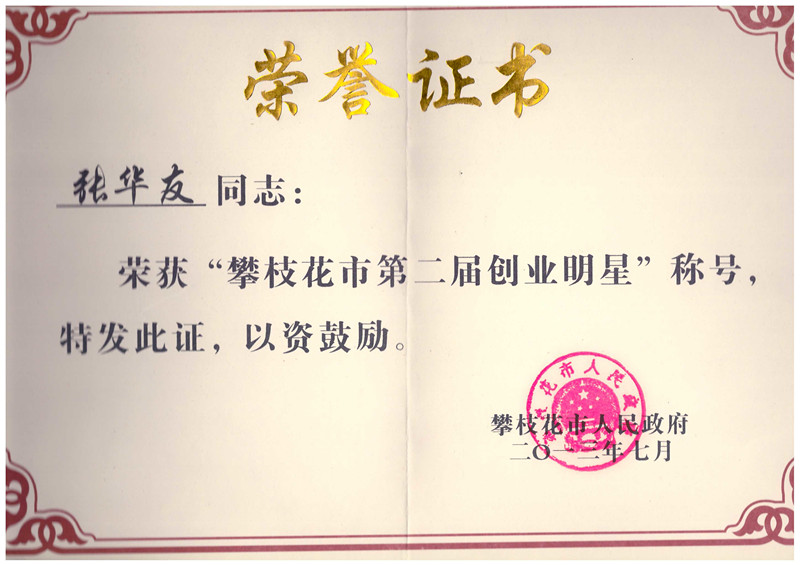 荣誉证书
张华友 同志：
荣获“攀枝花市第二届创业明星”称号，
特发此证，以资鼓励。
攀枝花市人民政府
二〇一三年七月